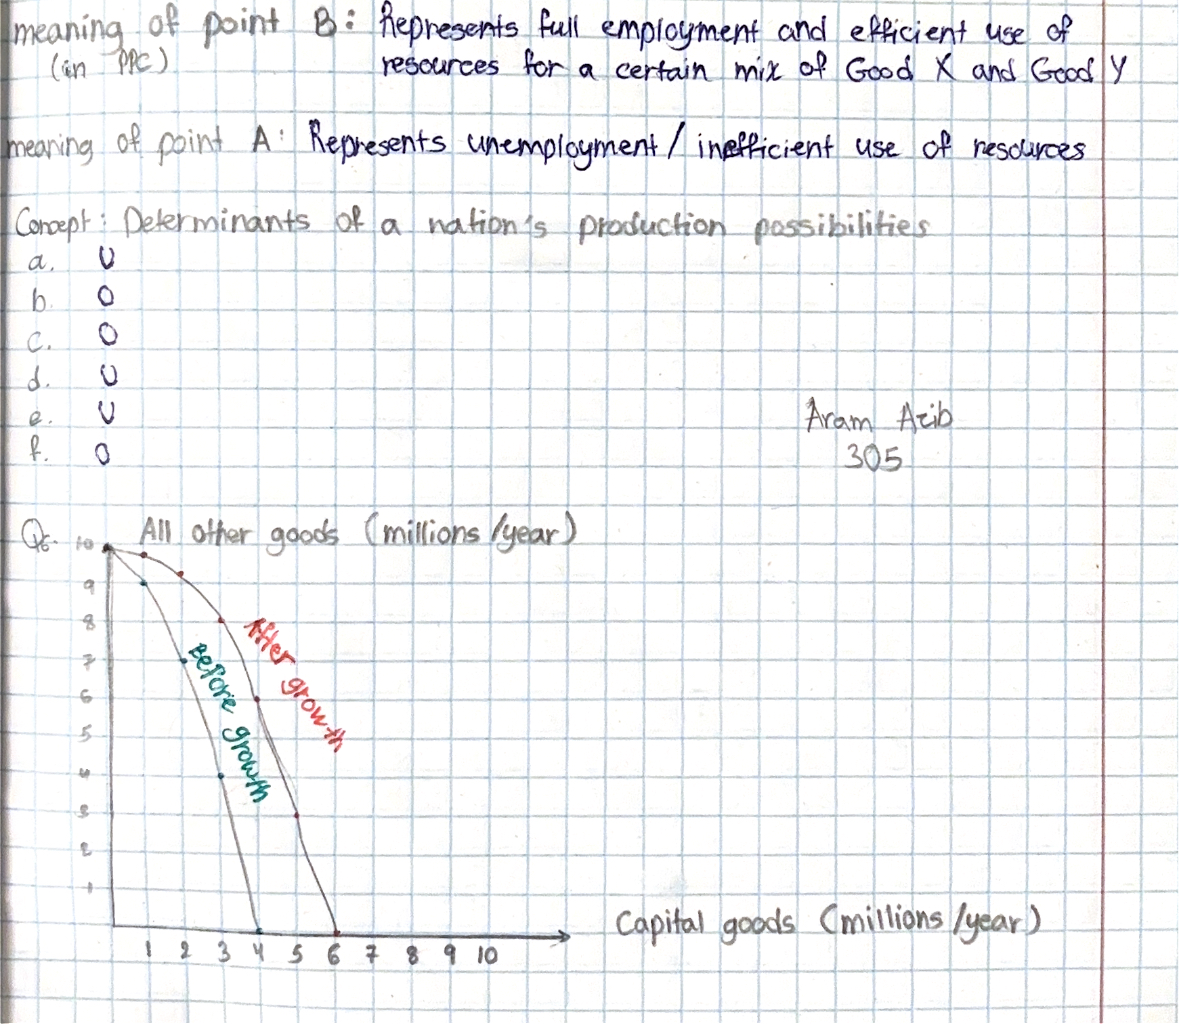 meaning of point B: Represents full employment and efficient use of
(in PPC) resources for a certain mix of Good X and Good Y
meaning of point A: Represents unemployment / inefficient use of resources
Concept: Determinants of a nation's production possibilities
a. U
b. O
c. O
d. U
e. U
f. O
Aram Azib
305
Q6. All other goods (millions/year)
10
9
8
7
6
5
4
3
2
1
After growth
Before growth
Capital goods (millions/year)
1 2 3 4 5 6 7 8 9 10